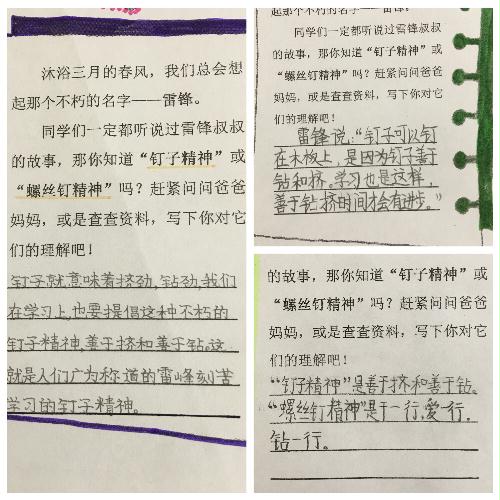 沐浴三月的春风，我们总会想
起那个不朽的名字——雷锋。
同学们一定都听说过雷锋叔叔
的故事，那你知道“钉子精神”或
“螺丝钉精神”吗？赶紧问问爸爸
妈妈，或是查查资料，写下你对它
们的理解吧！
钉子就意味着挤劲,钻劲,我们
在学习上,也要提倡这种不朽的
钉子精神,善于挤和善于钻。这
就是人们广为称道的雷峰刻苦
学习的钉子精神。
起那个不朽的名字——雷锋。
同学们一定都听说过雷锋叔叔
的故事，那你知道“钉子精神”或
“螺丝钉精神”吗？赶紧问问爸爸
妈妈，或是查查资料，写下你对它
们的理解吧！
雷锋说:“钉子可以钉
在木板上,是因为钉子善于
钻和挤。学习也是这样,
善于钻、挤时间才会有进步。”
的故事，那你知道“钉子精神”或
“螺丝钉精神”吗？赶紧问问爸爸
妈妈，或是查查资料，写下你对它
们的理解吧！
“钉子精神”是善于挤和善于钻。
“螺丝钉精神”是干一行,爱一行,
钻一行。